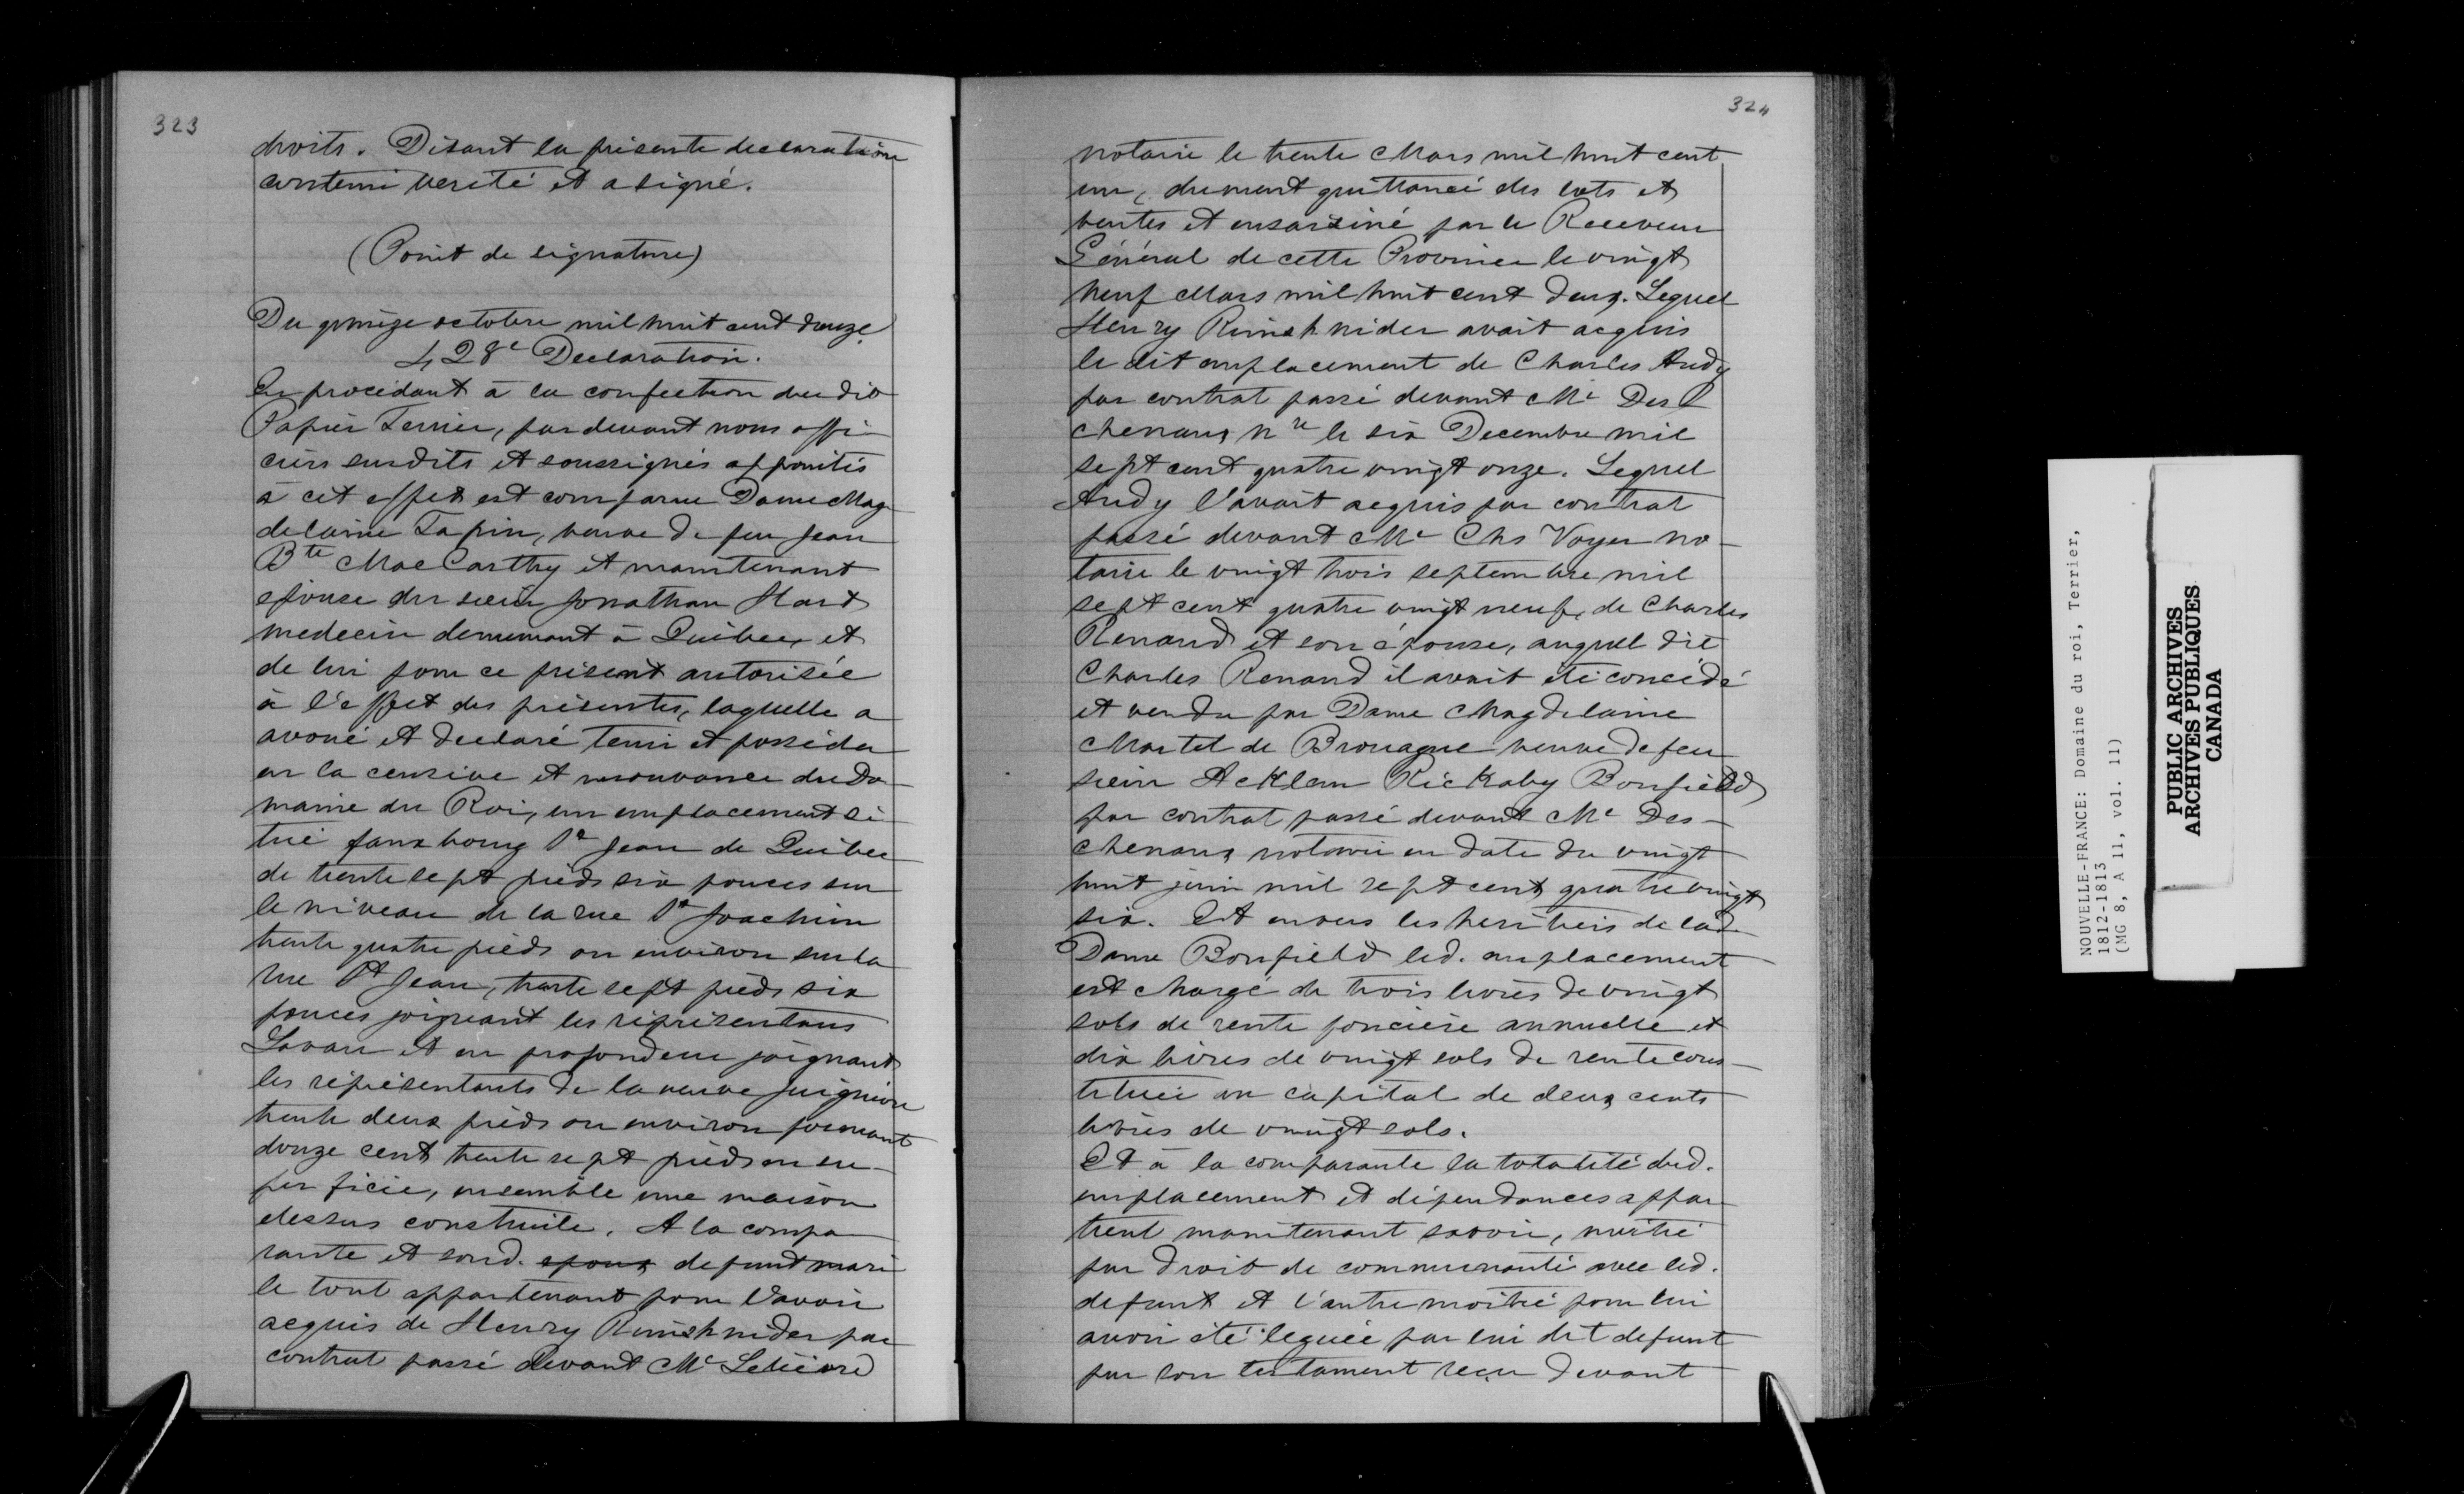 323
droits. Disant la présente declaration
contenir verité et a signé.
(Point de signature)
Du quinze octobre mil huit cent douze
428e Declaration.
En procédant à la confection du dit
Papier Terrier, par devant nous offi
ciers susdits et soussignés appointés
à cet effet est comparue Dame Mag
delaine Tapin, veuve de feu Jean
Bte MacCarthy et maintenant
epouse du sieur Jonathan Hart
medecin demeurant à Québec, et
de lui pour ce présent autorisée
à l'effet des présentes, laquelle a
avoué et declaré tenir et posséder
en la censive et mouvance du Do
maine du Roi, un emplacement si
tué faux bourg St Jean de Québec
de trente sept pieds six pouces sur
le niveau de la rue St Joachim
trente quatre pieds ou environ sur la
rue St Jean, trente sept pieds six
pouces joignant les réprésentans
Savare et en profondeur joignant
les réprésentants de la veuve
trente deux pieds ou environ formant
douze cent trente sept pieds en su-
per ficie, ensemble une maison
dessus construite. A la compa
rante et sond. epoux defunt mari
le tout appartenant pour l'avoir
acquis de Henry Rumshnider par
contrat passé devant Me Lelièvre
324
notaire le trente Mars mil huit cent
un, dument quittancé des lots et
ventes et ensaisiné par le Receveur
Général de cette Province le vingt
neuf Mars mil huit cent deux. Lequel
Henry Rumshnider avait acquis
le dit emplacement de Charles Andy
par contrat passé devant Me Des
chenaux nre le six Decembre mil
sept cent quatre vingt onze. Lequel
Andy l'avait acquis par contrat
passé devant Me Chs Voyer no-
taire le vingt trois septembre mil
sept cent quatre vingt neuf, de Charles
Renaud et son épouse, auquel dit
Charles Renaud il avait été concédé
et vendu par Dame Magdelaine
Martel de Brouague veuve de feu
sieur Acklam Rickaby Bonfield
par contrat passé devant Me Des-
chenaux notaire en date du vingt
huit juin mil sept cent quatre vingt
six. Et envers les heritiers de lad.
Dame Bonfield led. emplacement
est chargé de trois livres de vingt
sols de rente foncière annuelle et
dix livres de vingt sols de rente cons-
tituée au capital de deux cents
livres de vingt sols.
Et à la comparante la totalité dud.
emplacement et dépendances appar
tient maintenant savoir, moitié
par droit de communauté avec led.
defunt et l'autre moitié pour lui
avoir été leguée par lui dit defunt
par son testament reçu devant
NOUVELLE-FRANCE: Domaine du roi, Terrier,
1812-1813
(MG 8, A 11, vol. 11)
PUBLIC ARCHIVES
ARCHIVES PUBLIQUES
CANADA